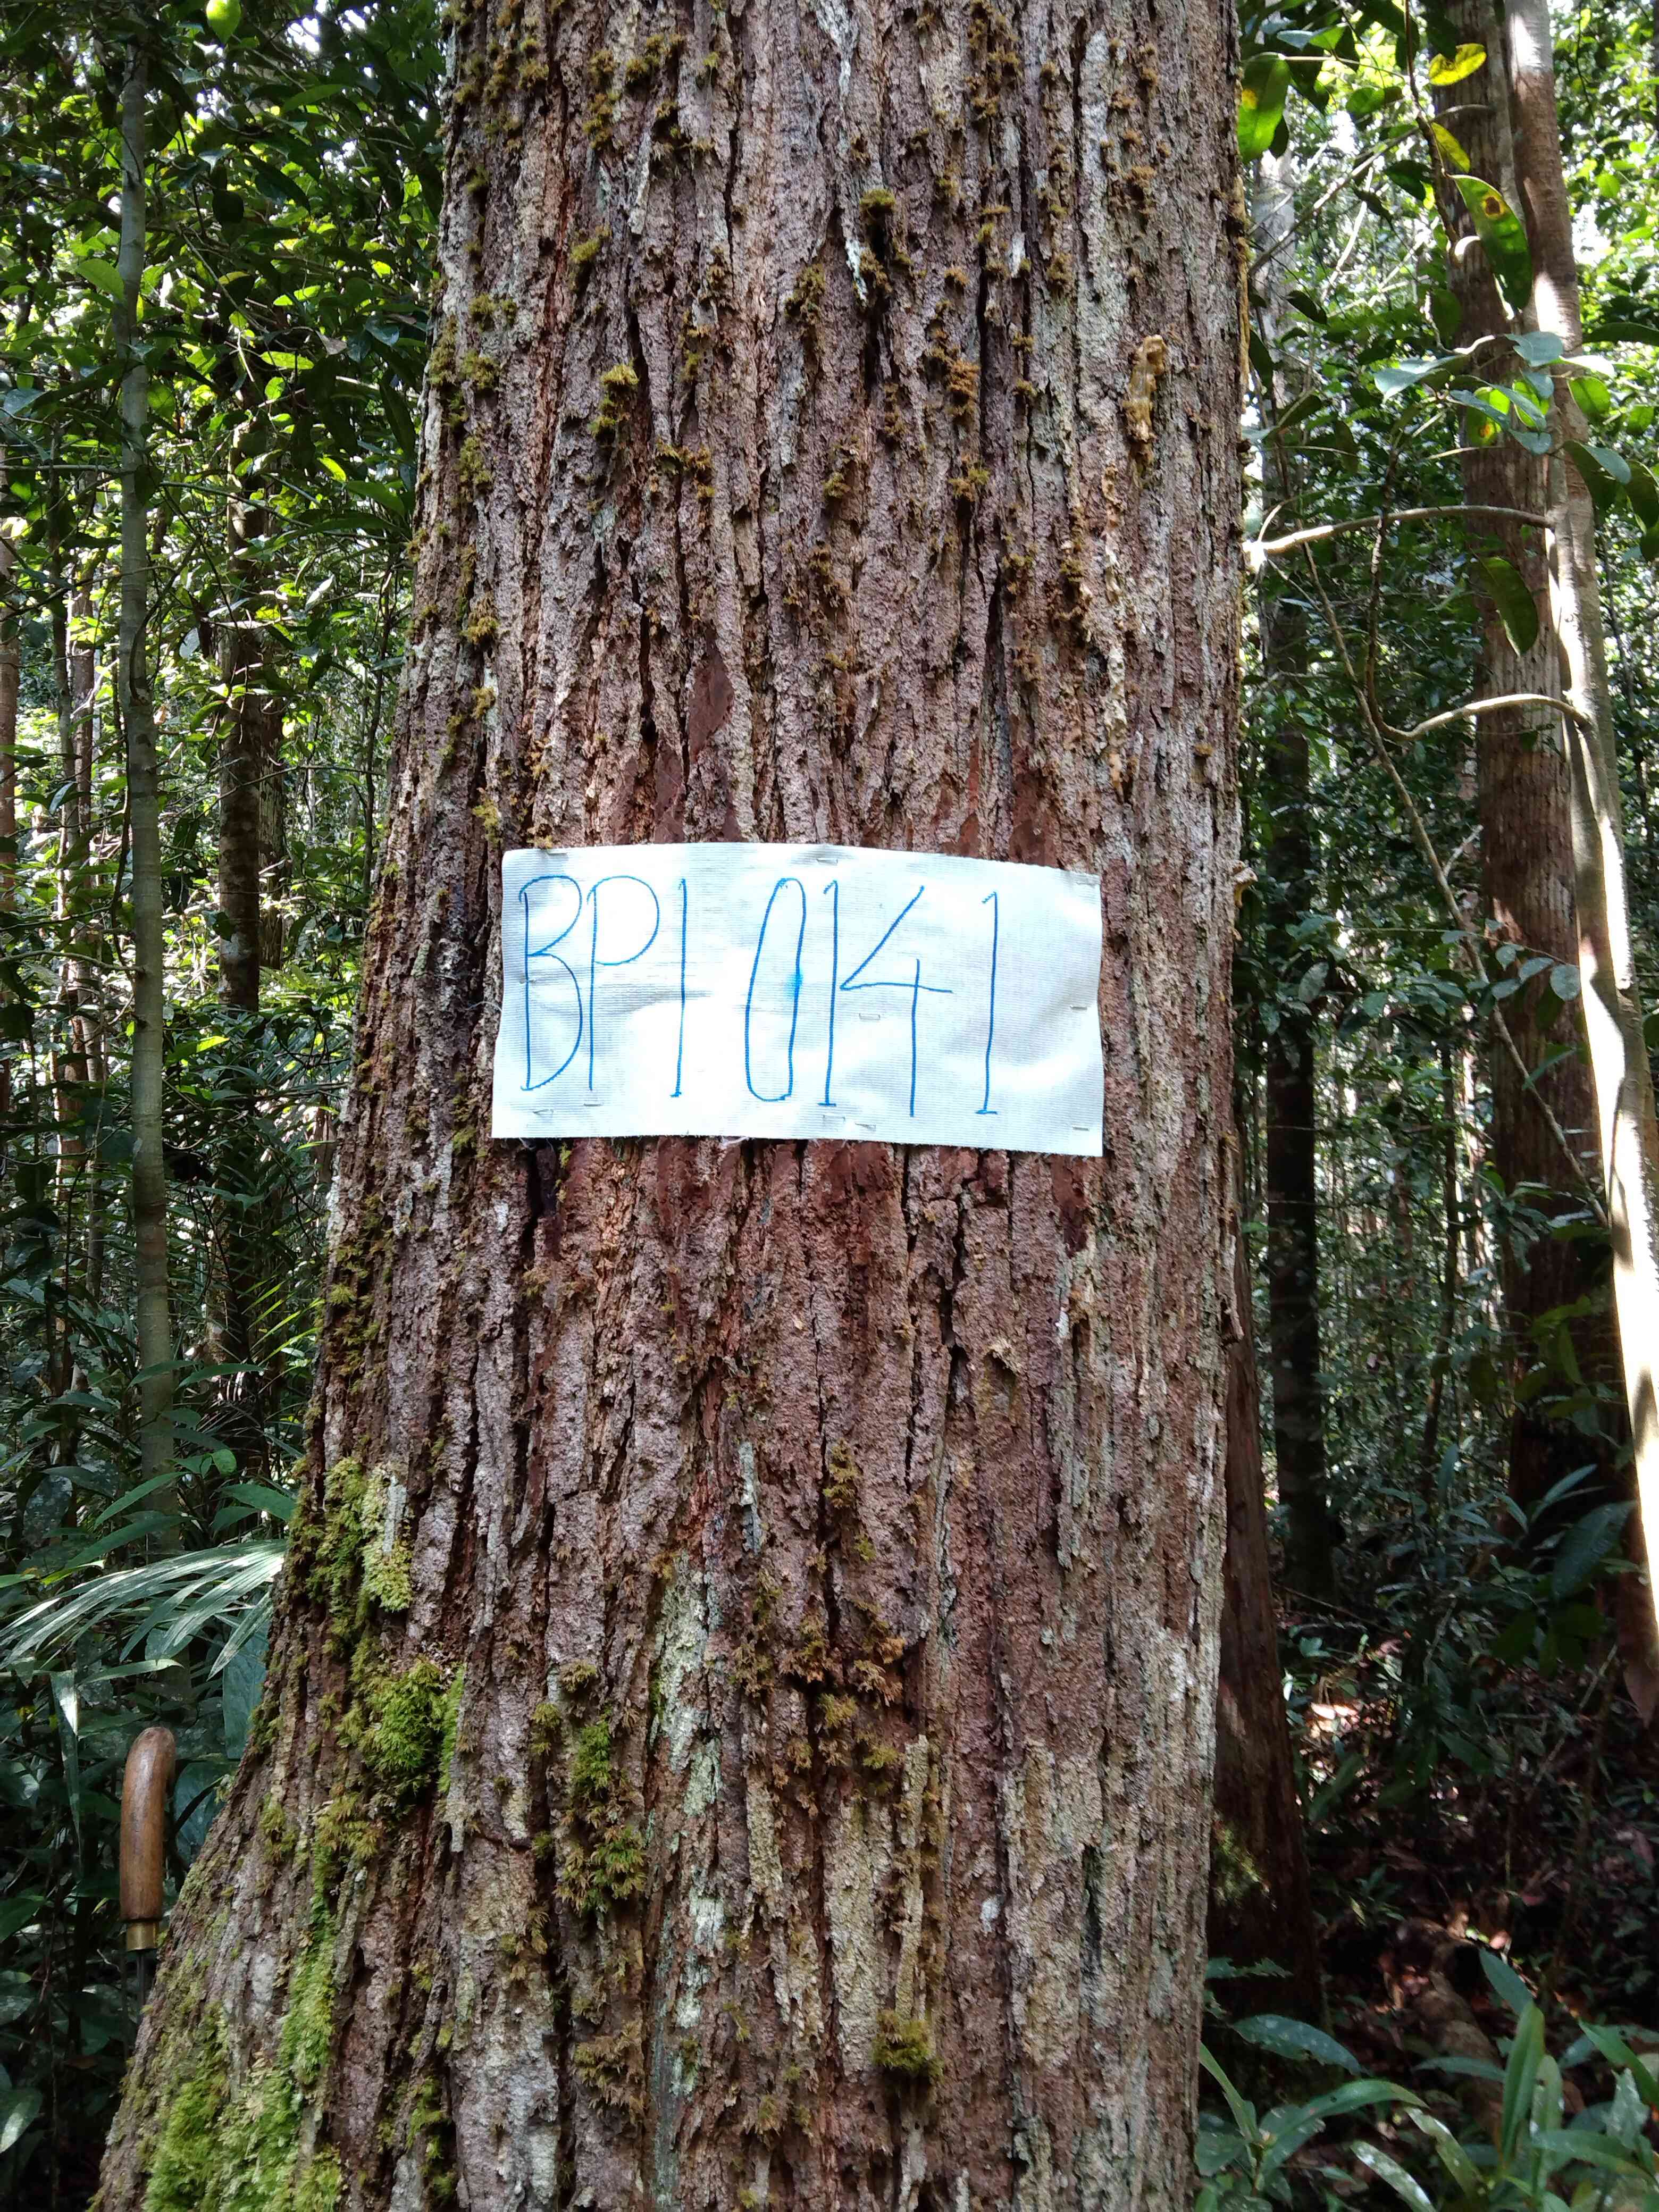 BP1 0141